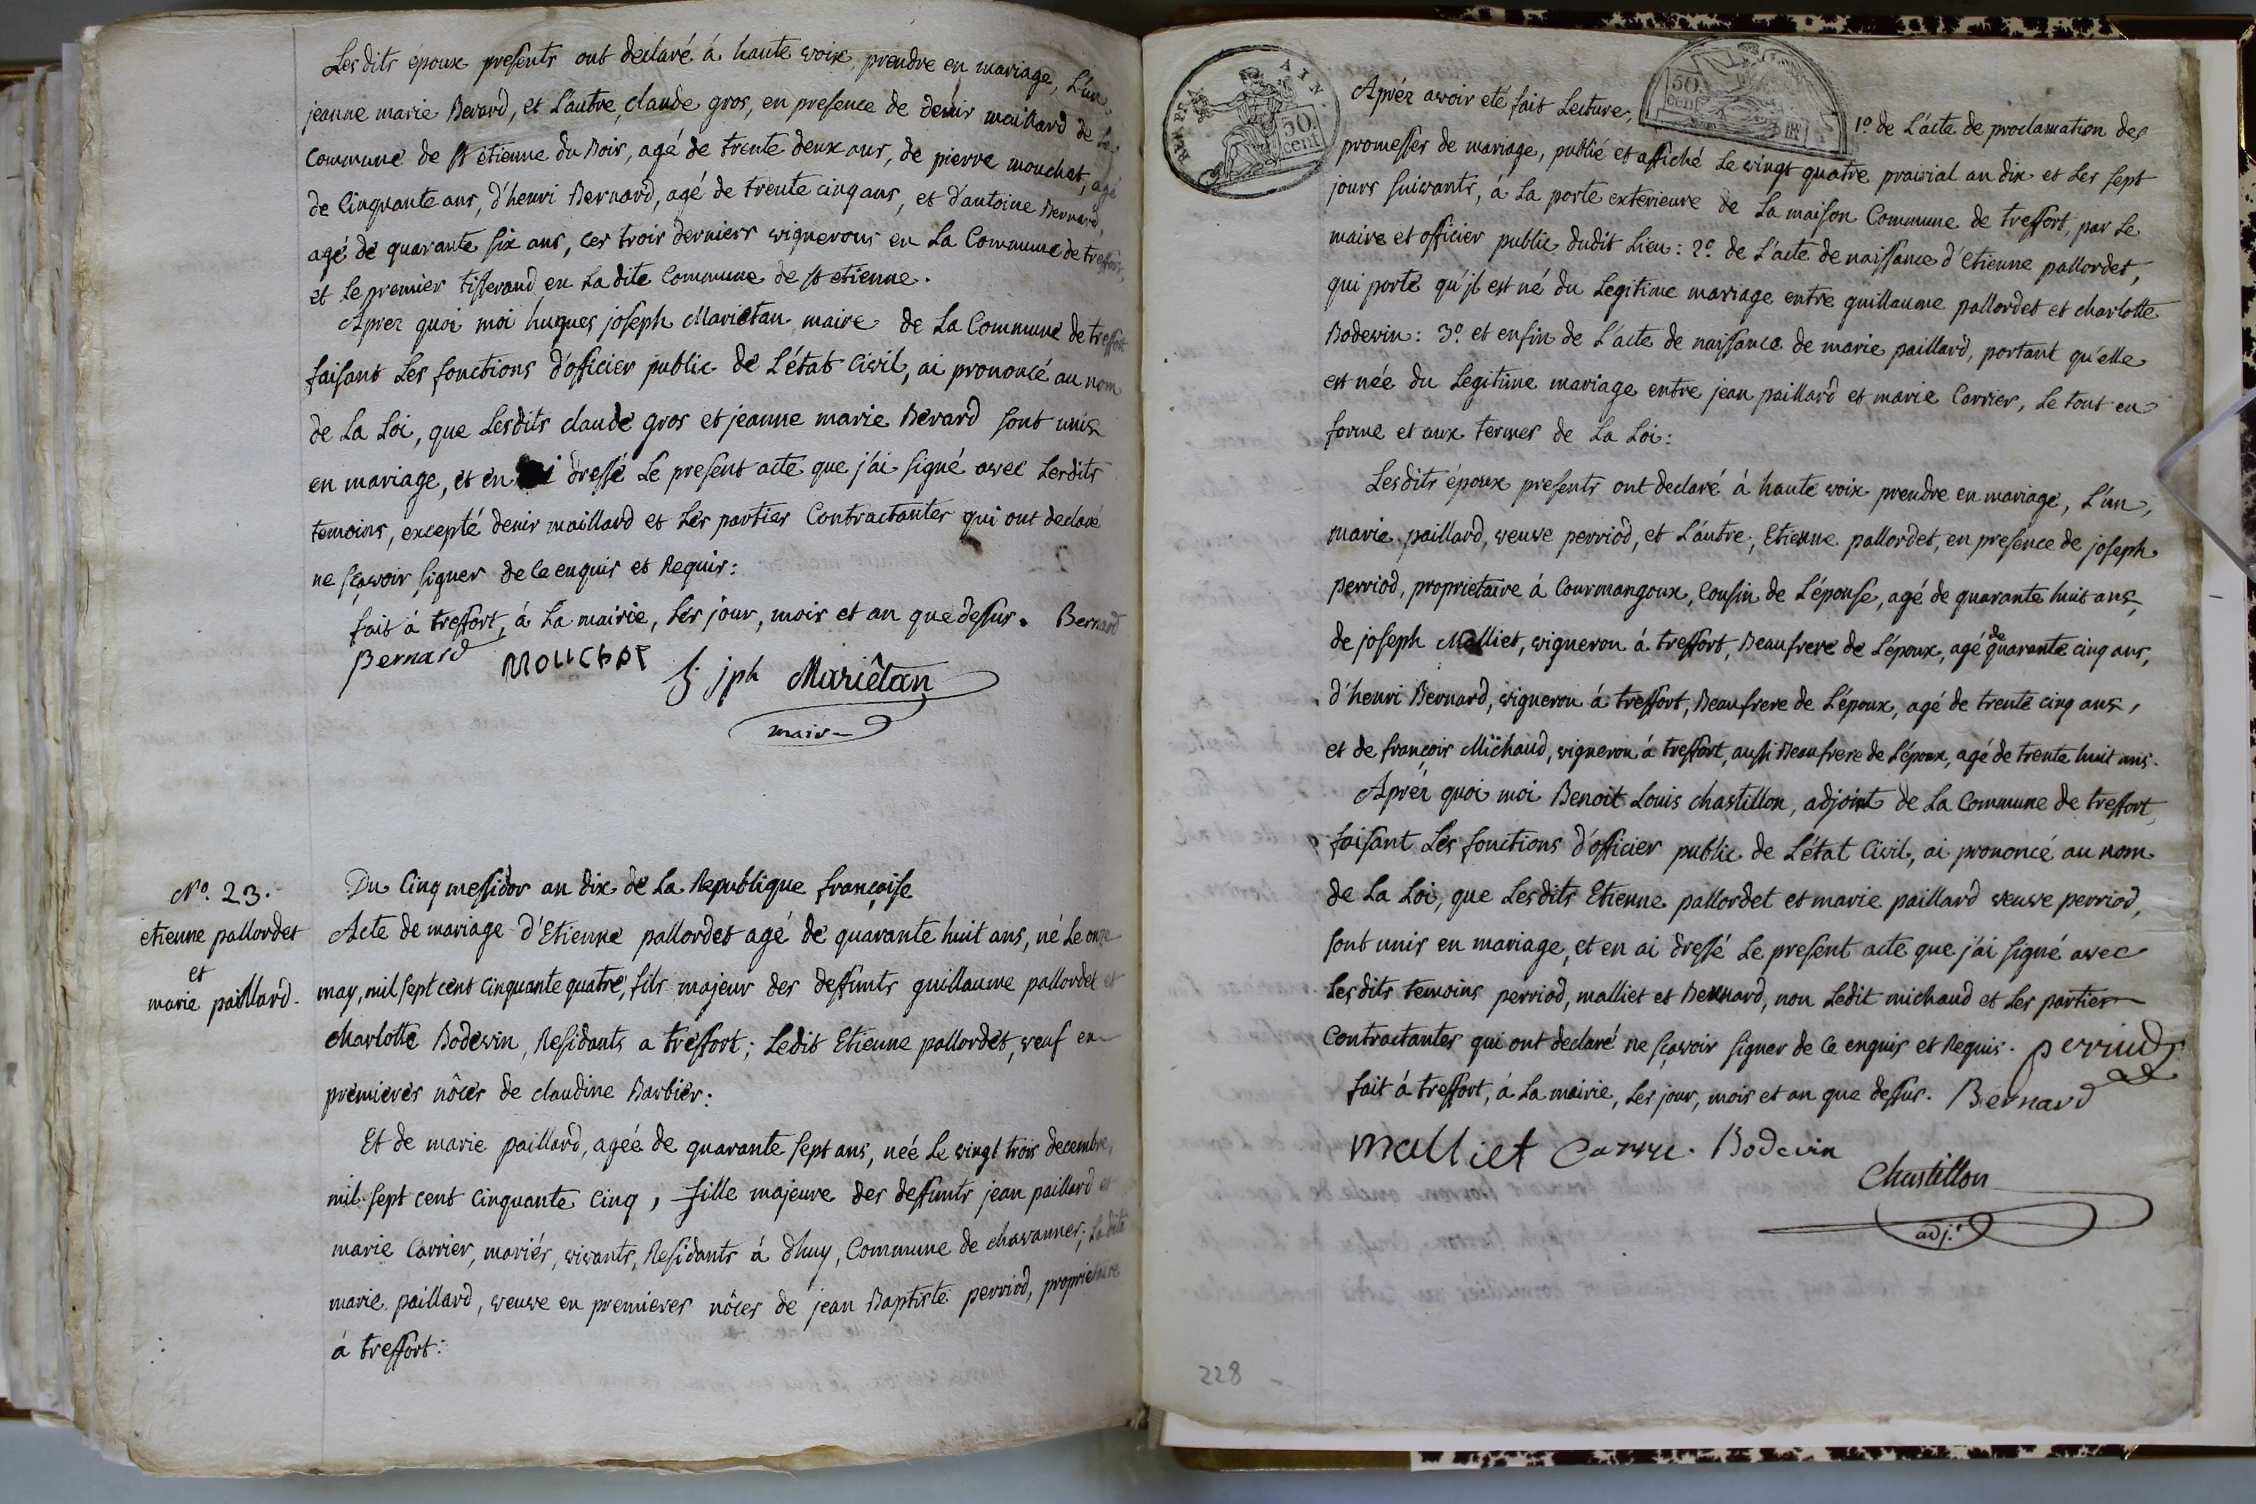 Lesdits époux presents ont declaré à haute voix, prendre en mariage, L'un
jeanne marie Berard, et L'autre, claude gros, en presence de denis maillard de La
Commune de st etienne du Bois, agé de trente deux ans, de pierre mouchat, agé
de Cinquante ans, d'henri Bernard, agé de trente cinq ans, et d'antoine Bernard,
agé de quarante six ans, ces trois derniers vignerons en La Commune de treffort,
et Le premier tisserand en La dite Commune de st etienne.
Aprez quoi moi hugues joseph Marietan maire de La Commune de treffort
faisant Les fonctions d'officier public de L'état Civil, ai prononcé au nom
de La Loi, que Lesdits claude gros et jeanne marie Berard sont unis
en mariage, et en ai dressé Le present acte que j'ai signé avec Lesdits
temoins, excepté denis maillard et Les parties Contractantes qui ont declaré
ne sçavoir signer de ce enquis et Requis:
fait à treffort, à La mairie, Les jour, mois et an que dessus. Bernard
Bernard mouchat h. jph Mariêtan
maire
Nº. 23.
etienne pallordet
et
marie paillard.
Du Cinq messidor an dix de La Republique françoise
Acte de mariage d'Etienne pallordet agé de quarante huit ans, né Le onze
may, mil sept cent cinquante quatre, fils majeur des deffunts guillaume pallordet et
charlotte Bodevin, Residants a treffort; Ledit Etienne pallordet, veuf en
premieres nôces de claudine Barbier:
Et de marie paillard, agée de quarante sept ans, née Le vingt trois decembre,
mil sept cent cinquante cinq, fille majeure des deffunts jean paillard et
marie Carrier, mariés, vivants, Residants à dhuy, Commune de chavannes; Ladite
marie paillard, veuve en premieres nôces de jean Baptiste perriod, proprietaire
à treffort:
REP. FRA. AIN.
50.
cent
50.
cent
Aprèz avoir eté fait Lecture, 1º de L'acte de proclamation des
promesses de mariage, publié et affiché Le vingt quatre prairial an dix et Les sept
jours suivants, à La porte exterieure de La maison Commune de treffort, par Le
maire et officier public dudit Lieu: 2º. de L'acte de naissance d'Etienne pallordet,
qui porte qu'jl est né du Legitime mariage entre guillaume pallordet et charlotte
Bodevin: 3º. et enfin de L'acte de naissance de marie paillard, portant qu'elle
est née du Legitime mariage entre jean paillard et marie Carrier, Le tout en
forme et aux termes de La Loi:
Lesdits époux presents ont declaré à haute voix prendre en mariage, L'un,
marie paillard, veuve perriod, et L'autre, Etienne pallordet, en presence de joseph
perriod, proprietaire à Courmangoux, Cousin de L'épouse, agé de quarante huit ans,
de joseph Malliet, vigneron à treffort, Beaufrere de L'époux, agé de quarante cinq ans,
d'henri Bernard, vigneron à treffort, Beaufrere de L'époux, agé de trente cinq ans,
et de françois Michaud, vigneron à treffort, aussi Beaufrere de L'époux, agé de trente huit ans.
Aprèz quoi moi Benoit Louis chastillon, adjoint de La Commune de treffort,
faisant Les fonctions d'officier public de L'état Civil, ai prononcé au nom
de La Loi, que Lesdits Etienne pallordet et marie paillard veuve perriod,
sont unis en mariage, et en ai dressé Le present acte que j'ai signé avec
Lesdits temoins perriod, malliet et Bernard, non Ledit michaud et Les parties
Contractantes qui ont declaré ne sçavoir signer de Ce enquis et Requis. perriod
fait à treffort, à La mairie, Les jour, mois et an que dessus. Bernard
malliet Bodevin
Chastillon
adj.t
228